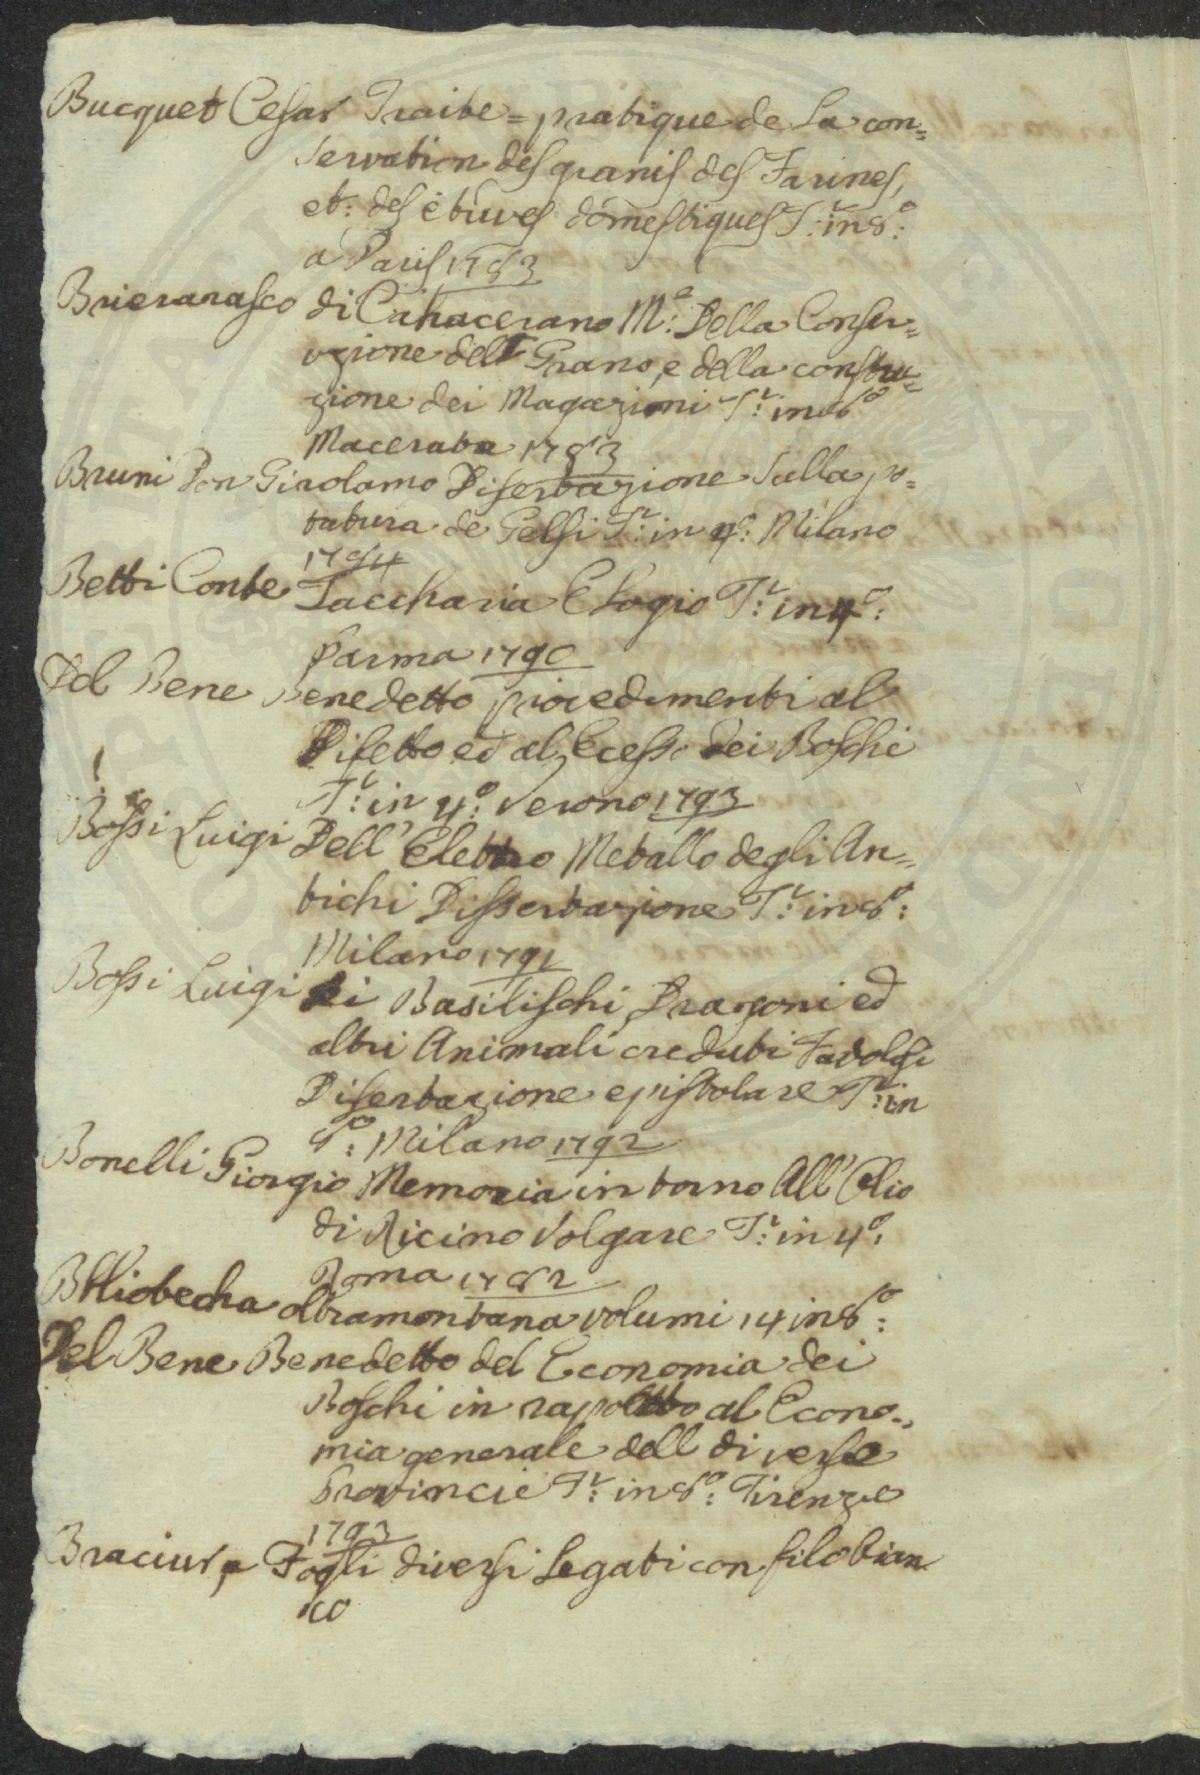 Bucquet Cesar Traite = pratique de La con=
servation des granis des Farines,
et: des étuves domestiques T:º in 8:º
a Paris 1783
Brieranasco di Cahacerano M:e Della Conser=
vzione dell Grano, e della constru=
zione dei Magazioni T:º in 8º
Macerata 1783
Bruni Don Girolamo Disertazione Sulla po=
tatura de Gelsi T:º in 4º: Milano
1784
Betti Conte Zaccharia Elogio T:º in 4º:
Parma 1790
Del Bene Benedetto provedimenti al
Difetto ed al Ecesso dei Boschi
T:º in 4:º Verono 1793
Bossi Luigi Dell' Elettro Metallo degli An=
tichi Dissertazione T:º in 8º:
Milano 1791
Bossi Luigi Di Basilischi Dragoni ed
altri Animali creduti Favolosi
Disertazione epistolare T:º in
8º: Milano 1792
Bonelli Giorgio Memoria in torno All' Olio
di Ricino Volgare T:º in 4º:
Roma 1782
Bbliotecha oltramontana volumi 14 in 8º:
Del Bene Benedetto del Economia dei
Boschi in rapotto al Econo=
mia generale dell diverse
Provincie T:º in 8º: Firenze
1793
Fogli diversi Legati con filo bian
co